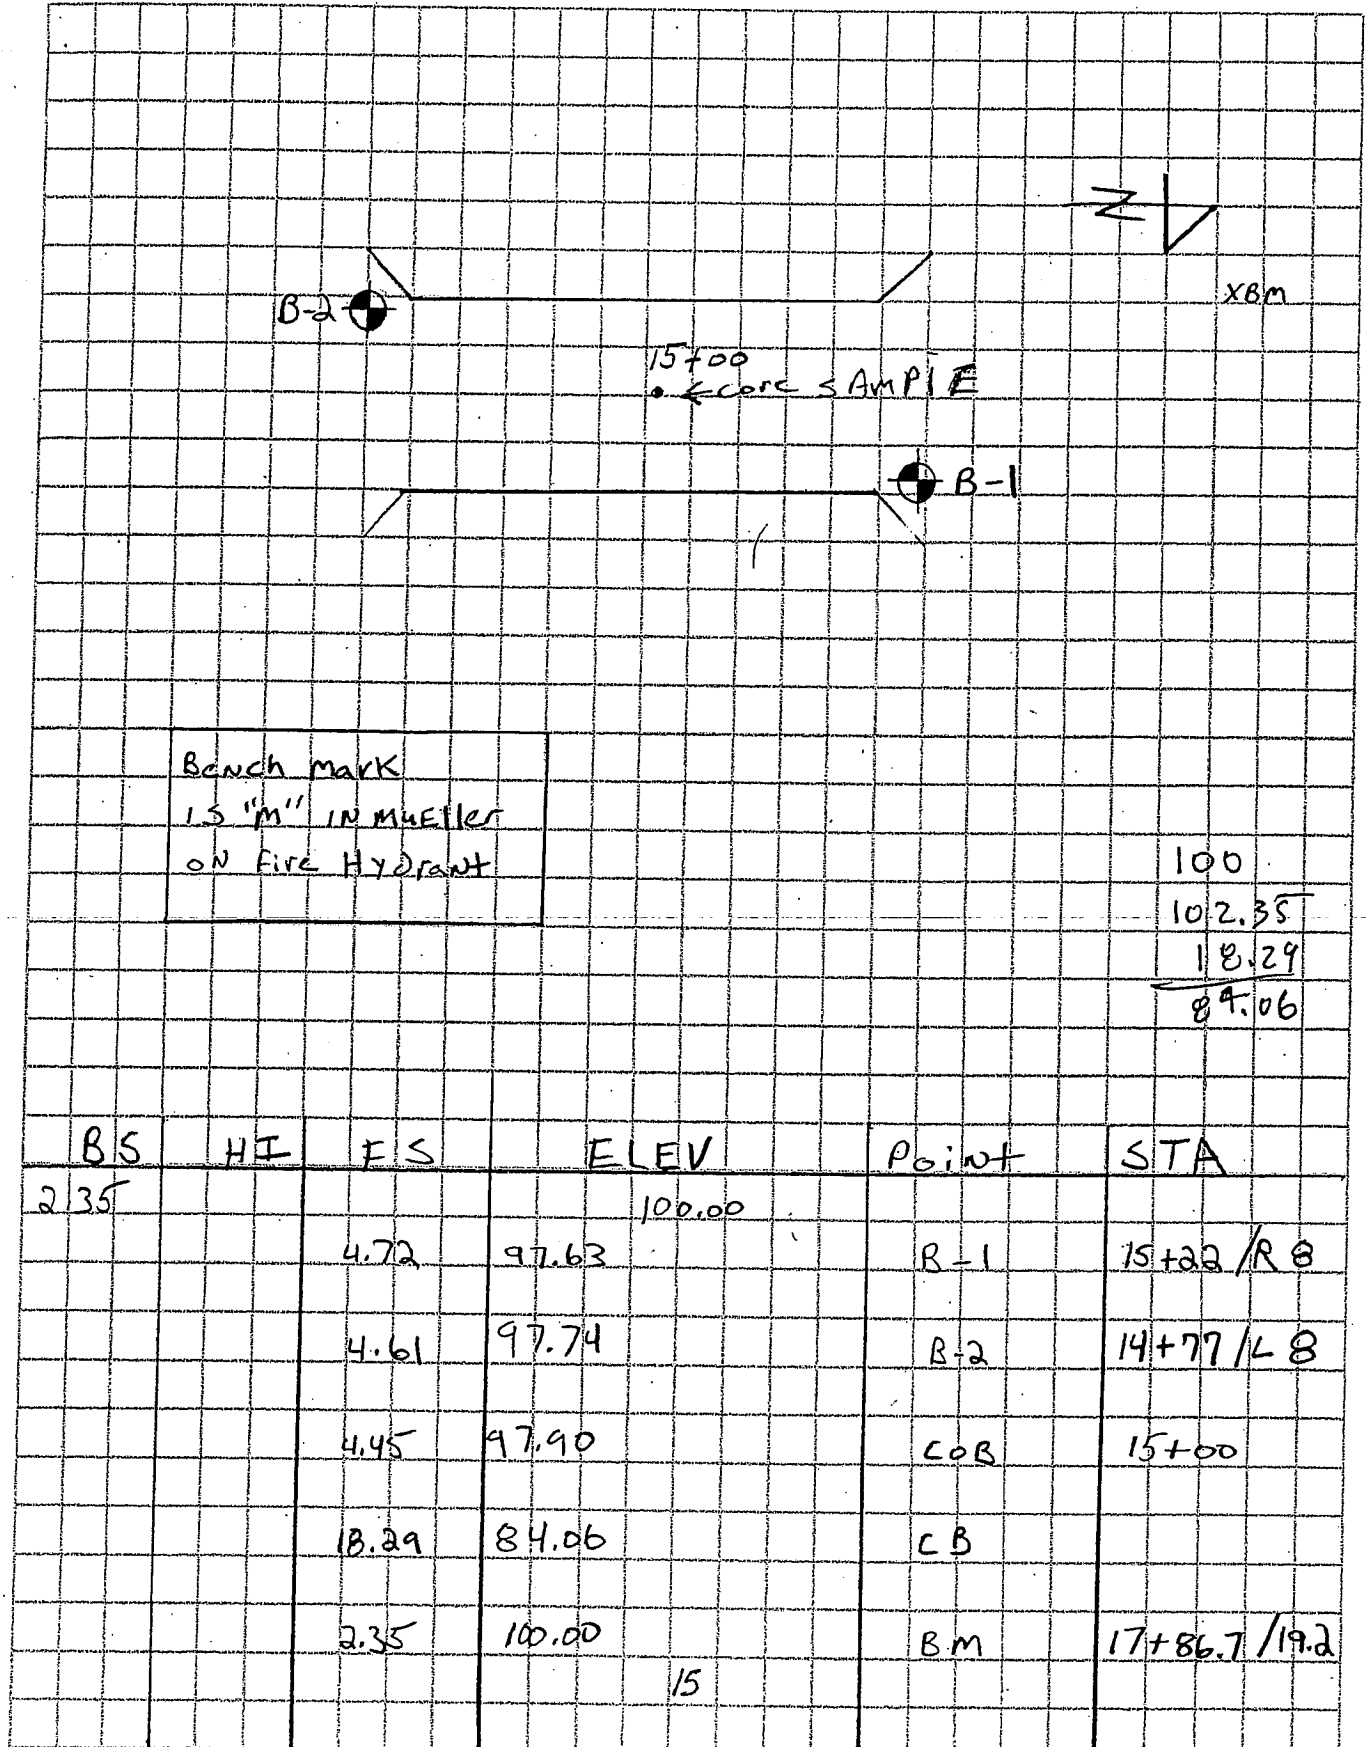 N
XBM
B-2
15+00
← core sAmplE
B-1
Bench mark
is "m" in muEller
oN Fire Hydrant
100
102.35
18.29
84.06
BS HI FS ELEV Point STA
2.35 100.00
4.72 97.63 B-1 15+22 /R 8
4.61 97.74 B-2 14+77 /L 8
4.45 97.90 COB 15+00
18.29 84.06 CB
2.35 100.00 BM 17+86.7 /19.2
15